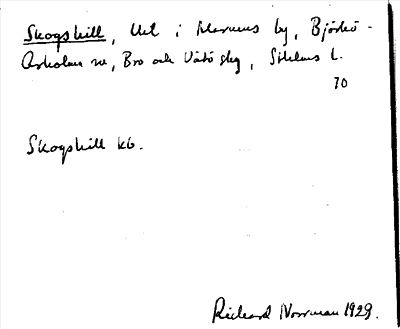 Skogshill, Utt i Marums by, Björkö-
Arholma sn, Bro och Vätö skg, Sthlms l.
70
Skogshill kb.
Rickard Norrman 1929.